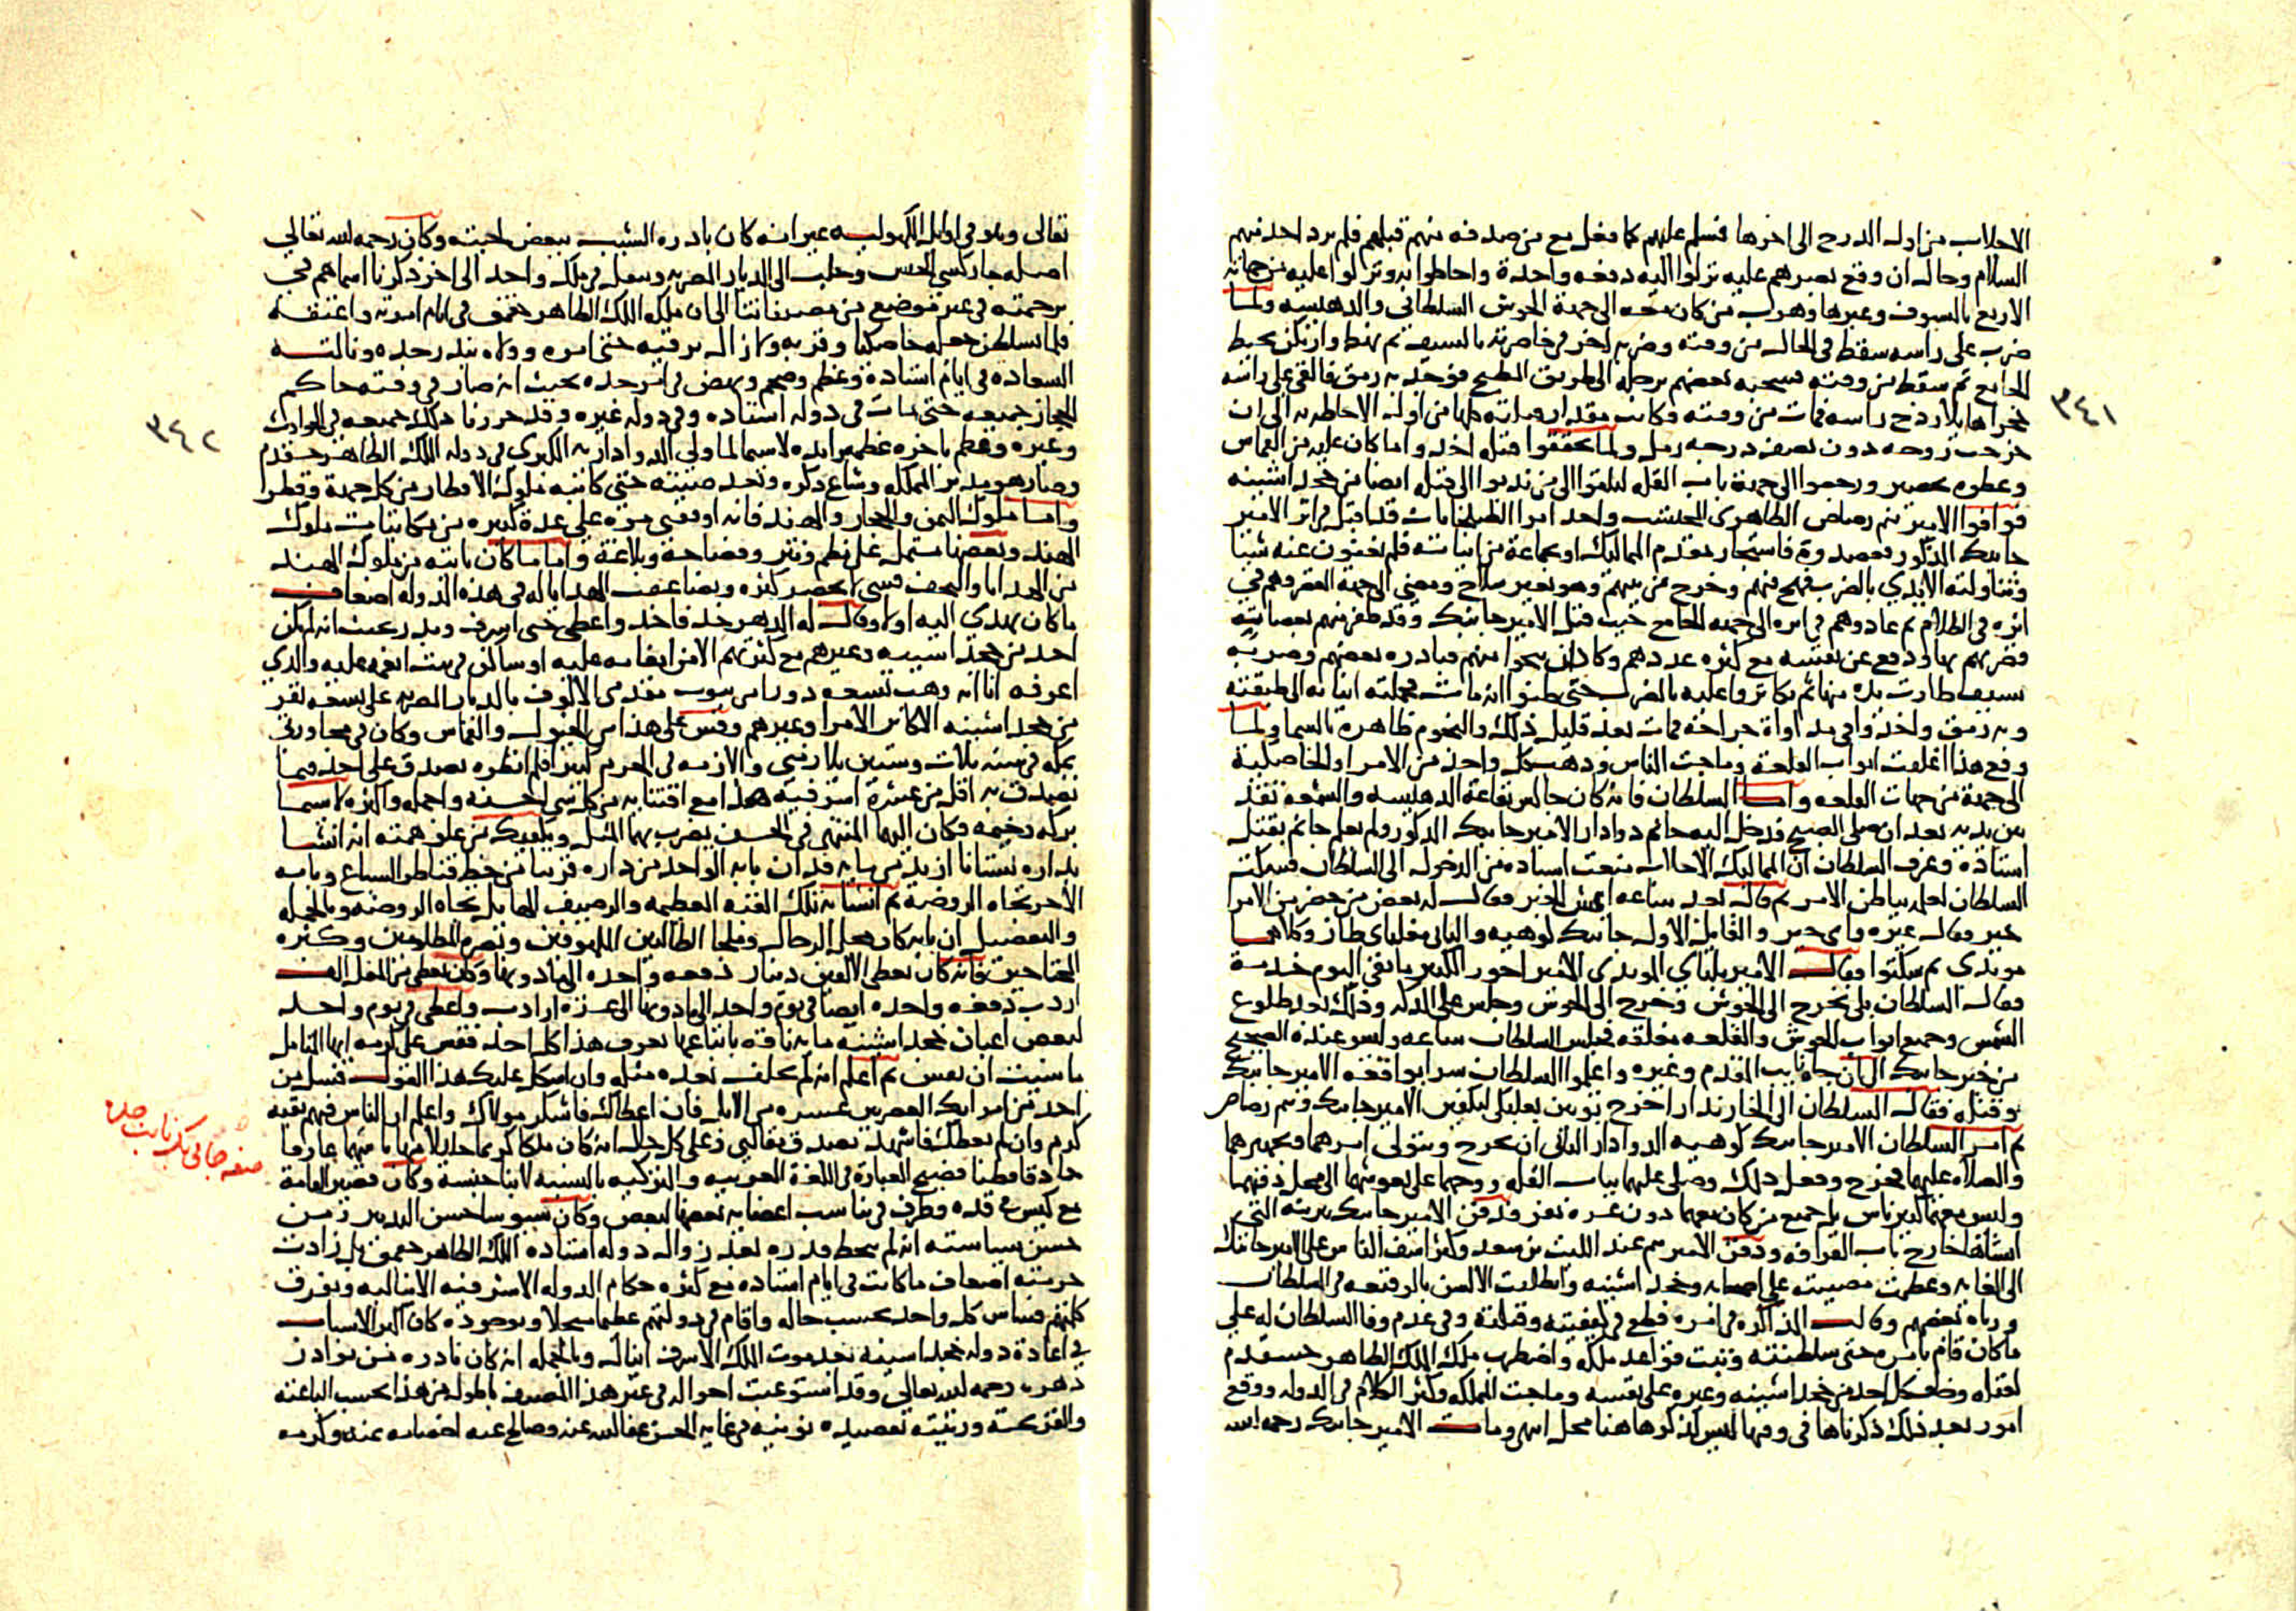 الاجلاب من اول الدرج الى اخرها فسلم عليهم كما فعل مع من صدفه منهم قبلهم فلم يرد احد منهم
السلام وحال ان وقع بصرهم عليه نزلوا اليه دفعه واحدة واحاطوا به ونزلوا عليه من جهاته
الاربع بالسيوف وغيرها وهرب من كان معه الى جهة الحوش السلطانى والدهليسه ولما
ضرب على راسه سقط فى الحال من وقته وضربه اخر فى خاصرته بالسيف ثم نهض واراد
الجامع ثم سقط من وقته فسحبه بعضهم برجله الى طريق المطبخ فوجد به رمق فالقى على راسه
حجرا هايلا رضخ راسه فمات من وقته وكانت مقدار هذه كلها من اول الاحاطه به الى ان
خرجت روحه دون نصف درجه رمل ولما تحققوا قتله اخذوا ما كان عليه من القماش
ورجعوا الى جهة باب القله ليلقوا الى من ندبوا الى قتله ايضا من خجداشيته
فوافوا الامير تنم رصاص الظاهرى المحتسب واحد امرا الطبلخانات
جانبك المذكور فاستجار بمقدم المماليك او بجماعة من فلم يغنون عنه شيئا
وتناولته الايدي بالضرب منهم وخرج من بينهم وهو بغير سلاح ومضى الى جهة القصر وهم فى
اثره فى الظلام ثم عادوهم فى اثره الى جهه الجامع حيث قتل الامير جانبك وقد ظفر منهم
فضربهم بها ودفع عن نفسه مع كثره عددهم وكاد ان ينجوا منهم فبادره بعضهم وضربه
بسيف طارت يده منها ثم تكاثروا عليه بالضرب حتى ظنوا انه مات فحملته الى طبقته
وبه رمق واخذوا فى مداواة جراحه فمات بعد قليل ذلك والنجوم ظاهرة بالسما ولما
وقع هذا اغلقت ابواب القلعة وماجت الناس وذهب كل واحد من الامرا والخاصكية
الى جهة من جهات القلعه واما السلطان فانه كان جالس بقاعة الدهليسه والشمعه تقد
بين يديه بعد ان صلى الصبح فدخل اليه جانم دوادار الامير جانبك المذكور ولم يعلم جانم بقتل
استاذه وعرف السلطان ان المماليك الاجلاب منعت استاذه من الدخول الى السلطان فسكت
السلطان لعلمه بباطن الامر ثم قال بعد ساعه ايش الخبر فقال له بعض من حضر من الامرا
خير فقال غيره واى خير والقايل الاول جانبك كوهيه والثانى مغلباى طاز وكلاهما
مويدى ثم سكتوا وقال الامير يلباي المويدى الامير اخور الكبير ما بقى اليوم خدمة
فقال السلطان بلى نخرج الى الحوش وخرج الى الحوش وجلس على الدكه وذلك بعد طلوع
الشمس وجميع ابواب الحوش والقلعه مغلقه فجلس السلطان ساعه وليس عنده الصحيح
من خبر جانبك الى ان جاه نايب المقدم وغيره واعلموا السلطان سرا بواقعة الامير جانبك
وقتله فقال السلطان الى الخازندار اخرج ثوبين بعلبكى لتكفين الامير جانبك وتنم رصاص
ثم امر السلطان الامير جانبك كوهيه الدوادار الثانى ان يخرج ويتولى امرهما وتجهيزهما
والصلاه عليهما فخرج وفعل ذلك وصلى عليهما بباب القله ووجها على نعوشهما الى محل دفنهما
وليس معهما كبير ناس بل جميع من كان معهما دون عشره نفر ودفن الامير جانبك بتربته التى
انشاها خارج باب القرافه ودفن الامير تنم عند الليث بن سعد وكثر اسف الناس على الامير جانبك
الى الغايه وعظمت مصيبته على اصحابه وخجداشيته وانطلقت الالسن بالوقيعه فى السلطان
ورثاه بعضهم وقالت المذاكره فى امره قطع فى كيفيته وقتلته وفى عدم وفا السلطان له على
ما كان قام بامره حتى سلطنته وثبت قواعد ملكه واضطرب ملك الملك الظاهر خشقدم
لقتله وخاف كل احد من خجداشيته وغيره على نفسه وماجت المملكه وكثر الكلام فى الدوله ووقع
امور بعد ذلك ذكرناها فى وقتها ليس لذكرها هنا محل انتهى ومات الامير جانبك رحمه الله
٣٤١
تعالى وهو فى اوايل الكهوليه غير انه كان بادره الشيب ببعض لحيته وكان رحمه الله تعالى
اصله جاركسي الجنس وجلب الى الديار المصريه وتنقل فى ملك واحد الى اخر ذكرنا اسماهم فى
ترجمته فى غير موضع من مصنفاتنا الى ان ملكه الملك الظاهر جقمق فى ايام امرته واعتقه
فلما تسلطن جعله خاصكيا وقربه ولا زال يرقيه حتى امره وولاه بندر جده ونالته
السعاده فى ايام استاذه وعظم وضخم ونهض فى امر جده بحيث انه صار فى وقته حاكم
الحجاز جميعه حتى مات فى دوله استاذه وفى دوله غيره وقد حررنا ذلك جميعه فى الحوادث
وغيره وعظم باخره عظمه زايده لاسيما لما ولى الدواداريه الكبرى فى دوله الملك الظاهر خشقدم
وصار هو مدبر المملكه وشاع ذكره وبعد صيته حتى كاتبه ملوك الاقطار من كل جهة وقطر
واما ملوك اليمن والحجاز والهند فانه اوقفنى مره على عدة كبيره من مكاتبات ملوك
الهند وبعضها مشتمل على نظم ونثر وفصاحة وبلاغة واما ما كان ياتيه من ملوك الهند
من الهدايا والتحف فشى لا يحصر كثره وتضاعفت الهدايا له فى هذه الدوله اضعاف
ما كان يهدى اليه اولا وقال له الدهر خذ فاخذ واعطى حتى اسرف وبدر بحيث انه لم يكن
احد من خجداشيته وغيرهم مع كثرتهم الا من انعامه عليه او ساكن فى بيت انعمه عليه والذي
اعرفه انا انه وهب تسعه دور من بيوت مقدمى الالوف بالديار المصريه على تسعه نفر
من خجداشيته الاكابر الامرا وغيرهم وقس على هذا من الخيول والقماش وكان فى مجاورتى
بمكه فى سنه ثلاث وستين يلازمنى والازمه فى الحرم كثيرا فلم انظره يصدق على احد فيما
تصدق به اقل من عشرة اشرفيه هذا مع اقتنايه من كل شى احسنه واجمله واكثره لا سيما
بركه وخيمه فكان اليهما المنتهى فى الحسن يضرب بهما المثل ويكفيك من علو همته انه انشا
بداره بستانا ازيد من مايه فدان بابه الواحد من داره قريبا من خط قناطر السباع وبابه
الاخر تجاه الروضه ثم انشا به تلك القبه العظيمه والرصيف الهايل تجاه الروضه وبالجمله
والتفصيل ان بابه كان محل الرحال وملجا الطالبين الملهوفين ونصره المظلومين وكثره
المحتاجين فانه كان يعطى الالفين دينار دفعه واحده الى ما دونها وكان يعطى من المغل الف
اردب دفعه واحده ايضا فى يوم واحد الى ما دونها الى عشره ارادب واعطى فى يوم واحد
لبعض اعيان خجداشيته مايه ناقه باتباعها يعرف هذا كل احد فقس على كرمه ايها المتامل
ما شيت ان تقيس ثم اعلم انه لم يخلف بعده مثله وان اشكل عليك هذا القول فسل من
احد من امرايك العصر عشره من الابل فان اعطاك فاشكر مولاك واعلم ان الناس فيهم بقيه
كرم وان لم يعطك فاشهد بصدق مقالتى وعلى كل حال انه كان ملكا كريما جليلا مهابا شهما عارفا
حاذقا فطنا فصيح العبارة فى اللغة العربيه والتركيه بالنسبه لابنا جنسه وكان قصير القامة
مع كيس فى قده وظرف فى تناسب اعضايه بعضها لبعض وكان سيوسا حسن التدبير ومن
حسن سياسته انه لم ينحط قدره بعد زوال دوله استاذه الملك الظاهر جقمق بل زادت
حرمته اضعاف ما كانت فى ايام استاذه مع كثره حكام الدوله الاشرفيه الايناليه وتفرق
كلمتهم فساس كل واحد بحسب حاله واقام فى دولتهم عظيما مبجلا وبوجوده كان اكبر الاسباب
فى اعادة دوله خجداشيته بعد موت الملك الاشرف اينال وبالجمله انه كان نادره من نوادر
دهره رحمه الله تعالى وقد استوعبت احواله فى غير هذا المصنف باطول من هذا بحسب الباعثه
والقريحه ورثيته بقصيده نونيه فى غايه الحسن عفا الله عنه وصالح عنه اخصامه بمنه وكرمه
٣٤٢
صفه جانى بك نايب جده